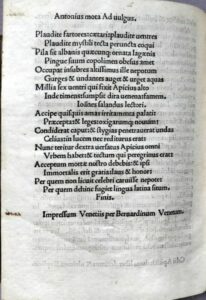 Antonius mota Ad uulgus.
Plaudite sartores: cætarii: plaudite uentres
Plaudite mystili tecta per uncta coqui
Pila sit albanis quæcunq; ornata lagænis
Pingue suum copo limen obesus amet
Occupat insubres altissimus ille nepotum
Gurges & undantes auget & urget aquas
Millia sex uentri qui fixit Apicius alto
Inde timens: sumpsit dira uenena: famem.
Ioannes salandus lectori.
Accipe quisquis amas irritamenta palati
Præcepta: & leges: oxigarumq; nouum:
Condiderat caput: & stygias penetrauerat undas
Celius: in lucem nec rediturus erat:
Nunc teritur dextra uersatus Apicius omni
Vrbem habet: & tectum qui peregrinus erat:
Acceptum motæ nostro debebis: & ipsi
Immortalis erit gratia: laus & honor:
Per quem non licuit celebri caruisse nepote:
Per quem dehinc fugiet lingua latina situm.
Finis.
Impressum Venetiis per Bernardinum Venetum.